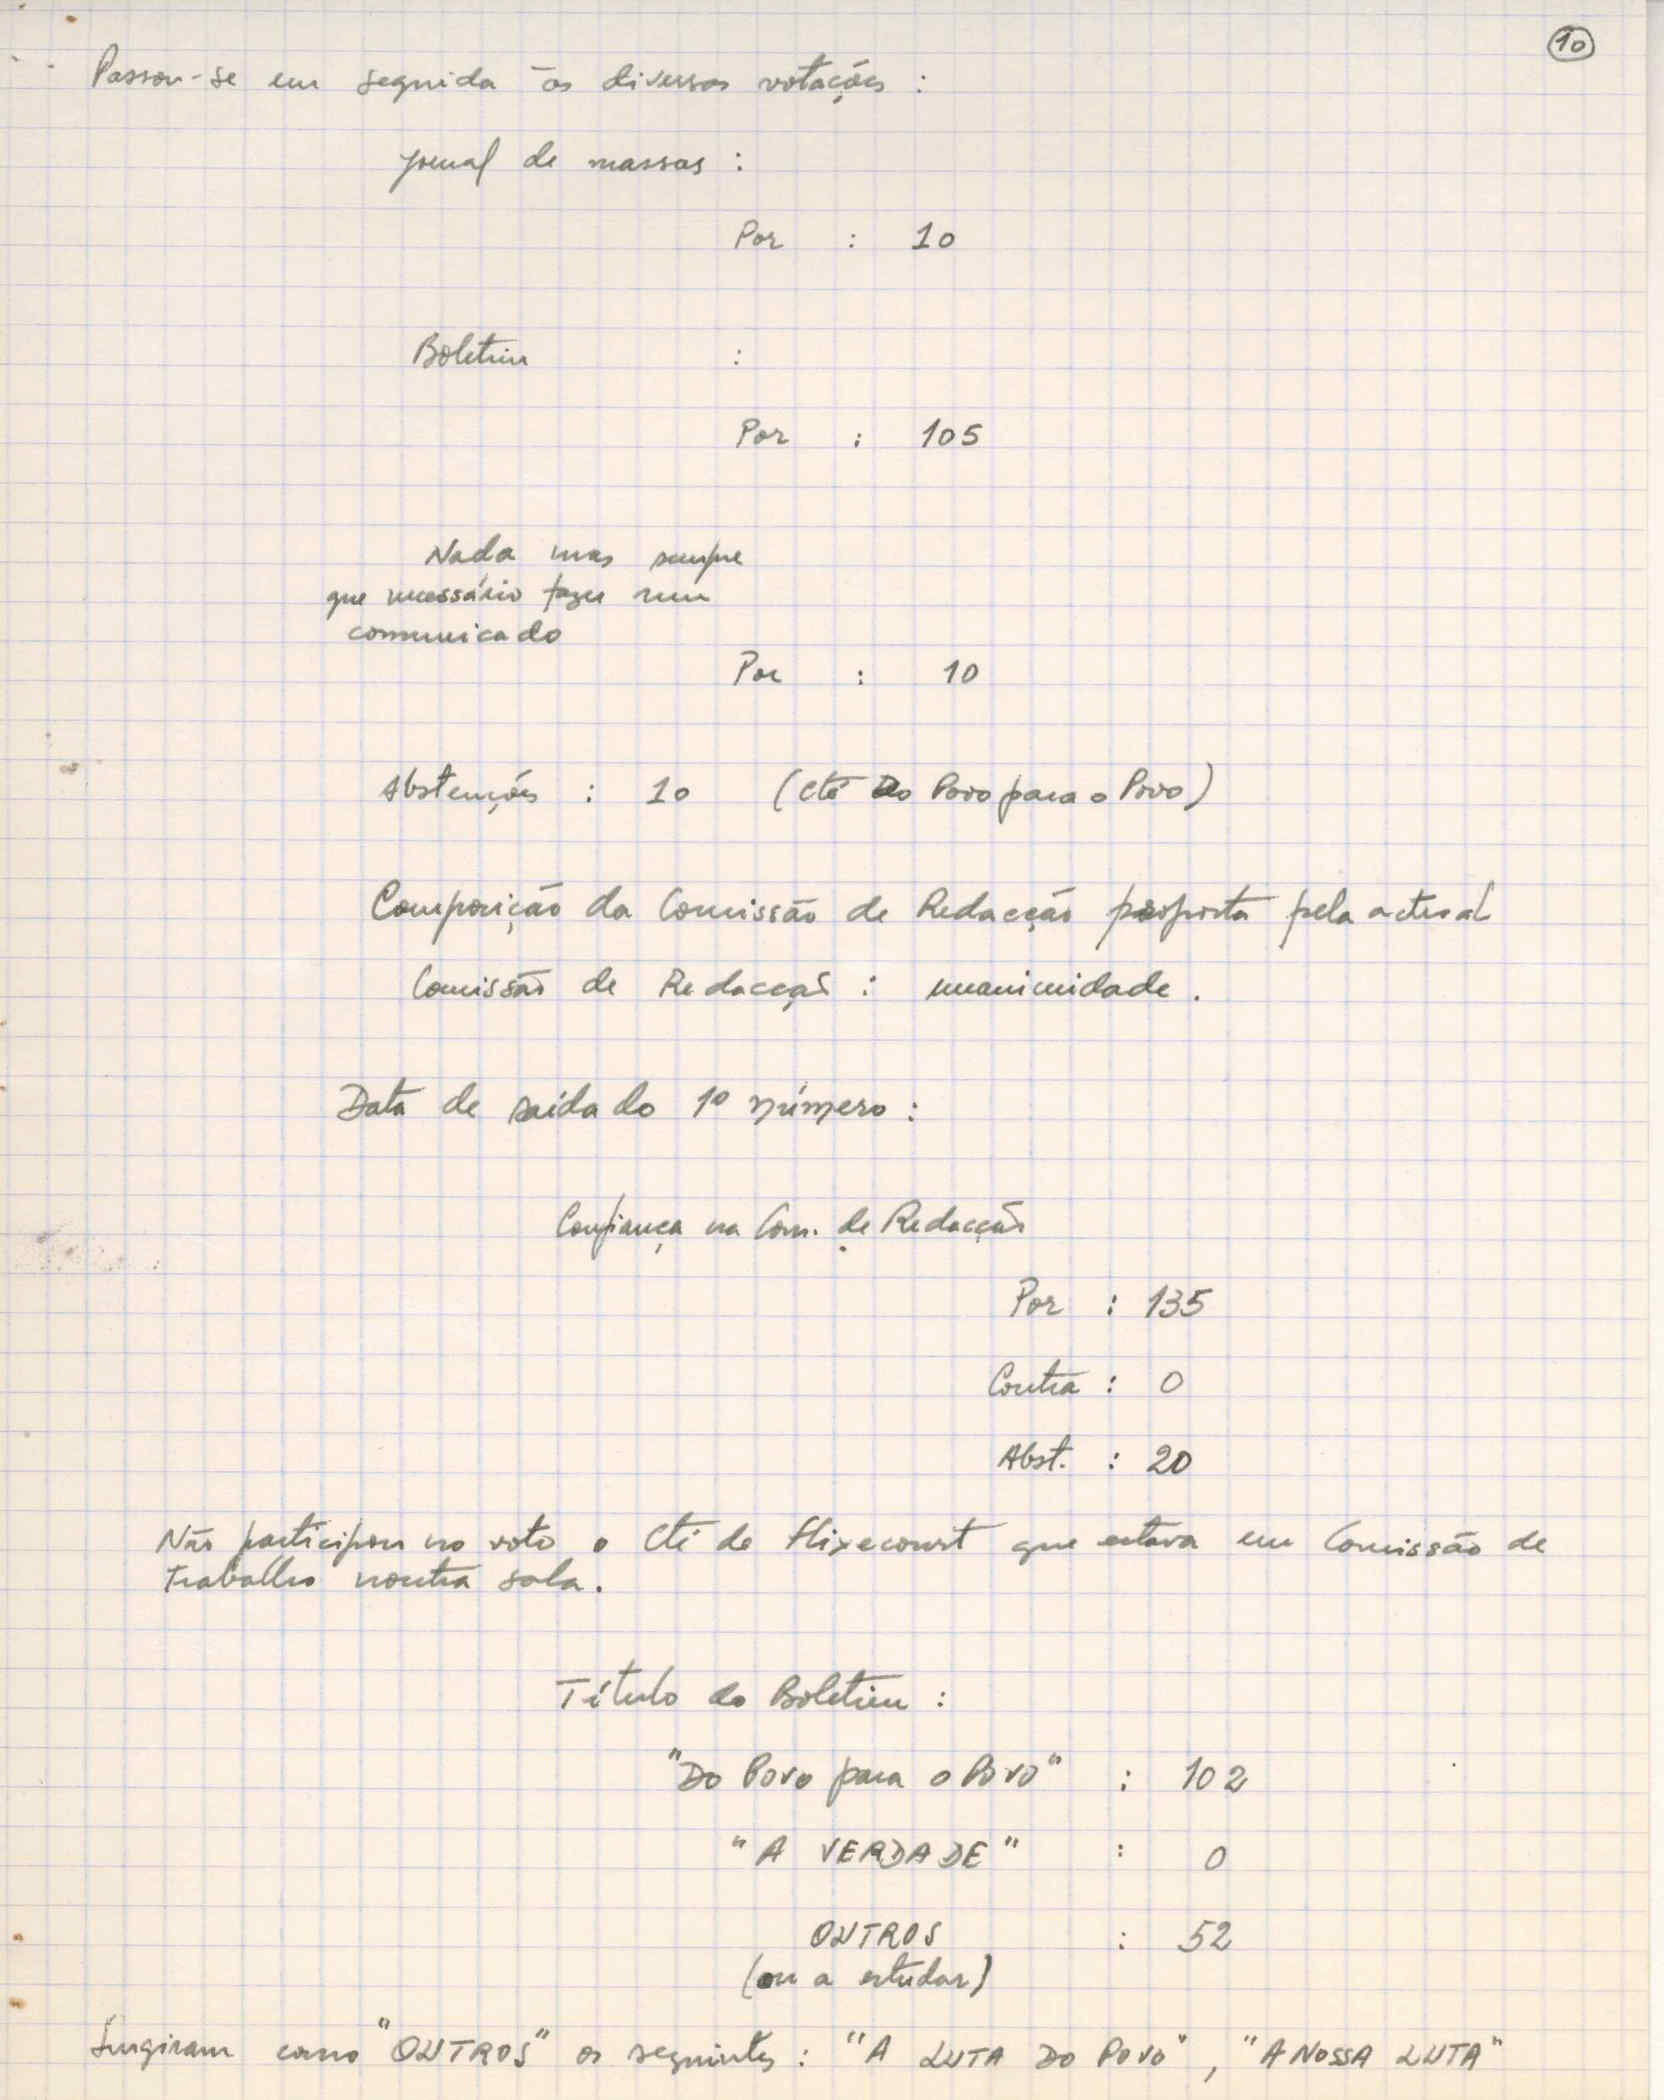 10
Passou-se em seguida às diversas votações :
Jornal de massas :
Por : 10
Boletim :
Por : 105
Nada mas sempre
que necessário fazer um
comunicado
Por : 10
Abstenções : 10 (Cté Do Povo para o Povo)
Composição da Comissão de Redacção proposta pela actual
Comissão de Redacção : unanimidade.
Data de saída do 1º número :
Confiança na Com. de Redacção
Por : 135
Contra : 0
Abst. : 20
Não participou no voto o Cté de Flixecourt que estava em Comissão de
Trabalho noutra sala.
Título do Boletim :
"Do Povo para o Povo" : 102
"A VERDADE" : 0
OUTROS : 52
(ou a estudar)
Surgiram como "OUTROS" os seguintes : "A LUTA DO POVO", "A NOSSA LUTA"